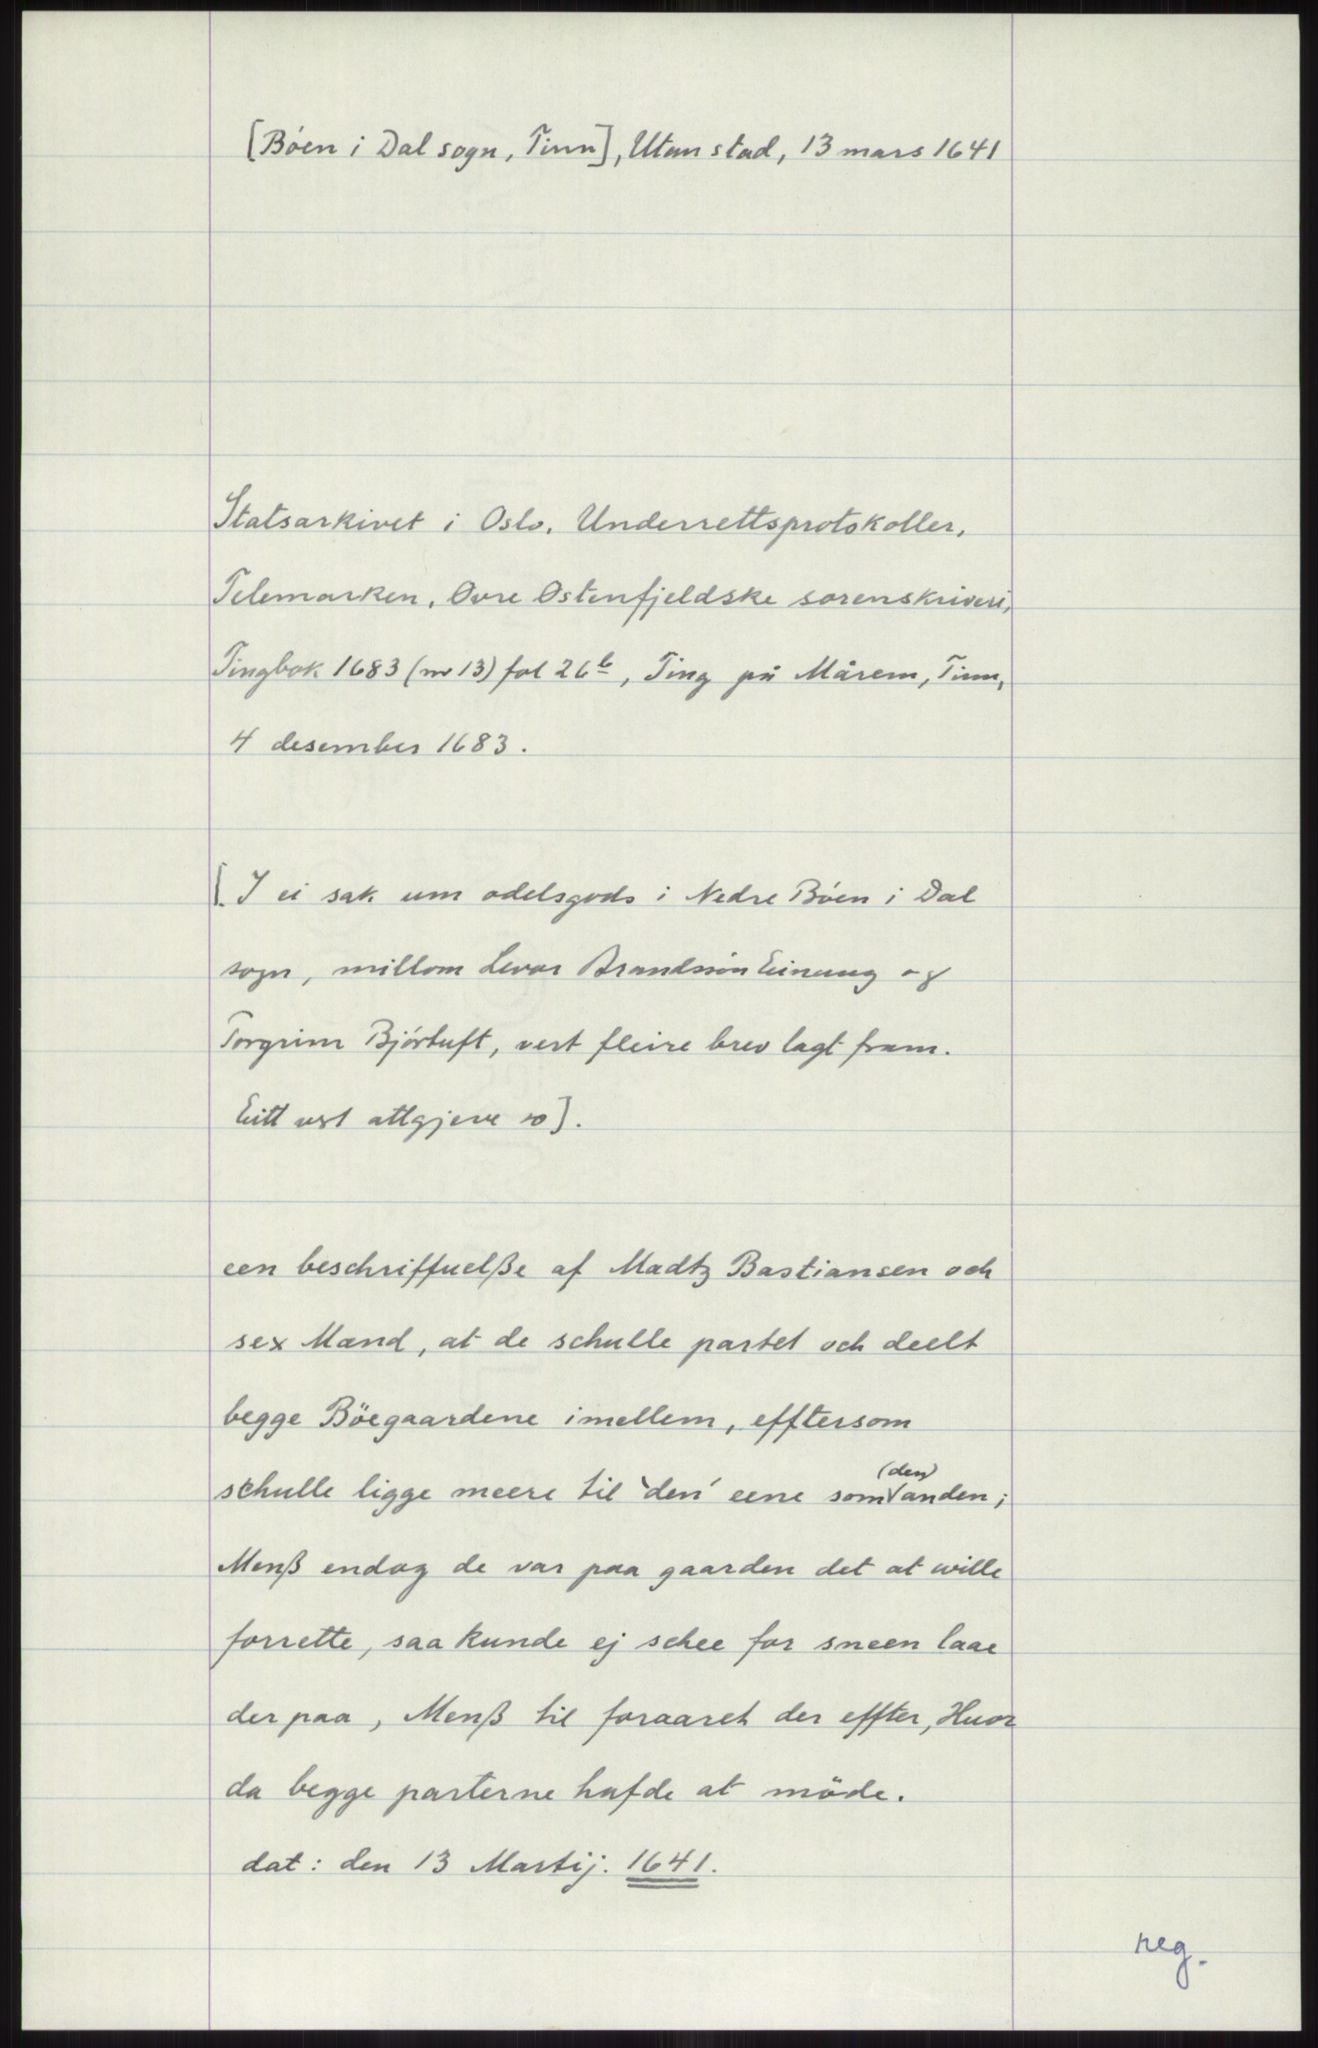 [Böen i Dal sogn, Tinn], Utan stad, 13 mars 1641
Statsarkivet i Oslo. Underrettsprotokoller,
Telemarken, Øvre Østenfjeldske sorenskriveri,
Tingbok 1683 (nr 13) fol 26b, Ting på Mårem, Tinn,
4 desember 1683.
[I ei sak um odelsgods i Nedre Böen i Dal
sogn, millom Levor Brandssön Einung og
Torgrim Björtuft, vert fleire brev lagt fram.
Eitt vert attgjeve so].
een beschriffuelße af Madtz Bastiansen och
sex Mænd, at de schulle partet och deelt
begge Böegaardene imellem, efftersom
schulle ligge meere til 'den' eene som (den) anden;
Menß endog de var paa gaarden det at wille
forrette, saa kunde ej schee for sneen laae
der paa, Menß til foraaret der effter, Huor
da begge parterne hafde at möde.
dat: den 13 Martij. 1641.
reg.